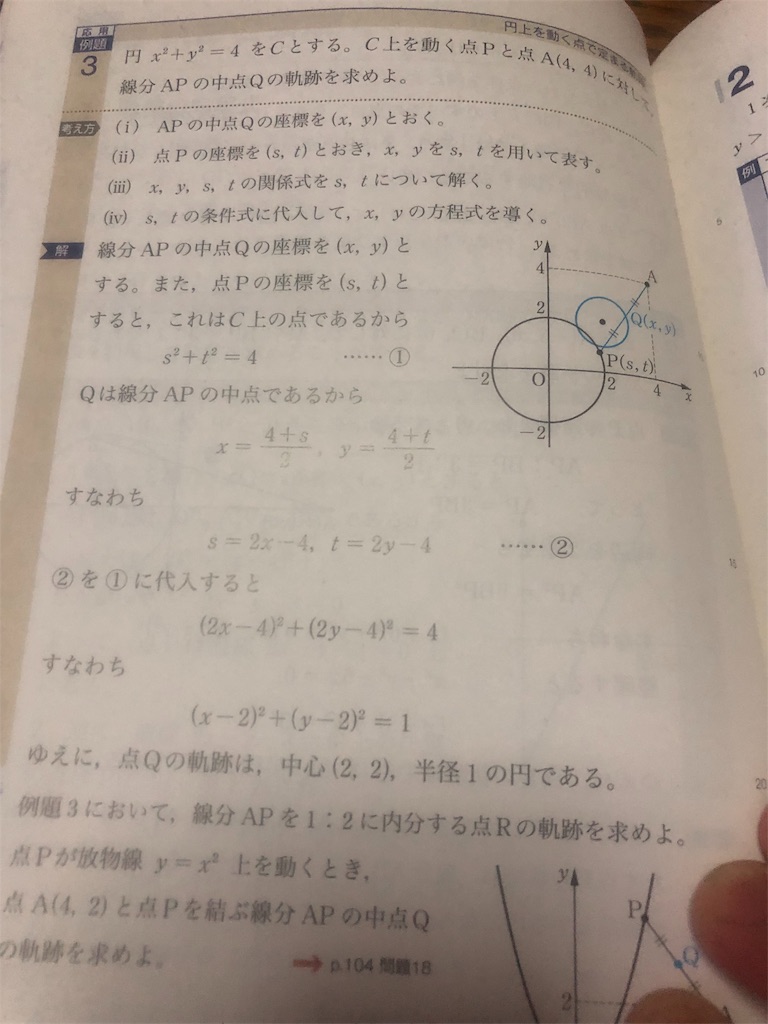 円上を動く点で定まる
応用
例題
3
円 x²+y²=4 をCとする。C上を動く点Pと点A(4, 4)に対して,
線分APの中点Qの軌跡を求めよ。
考え方
(i) APの中点Qの座標を(x, y)とおく。
(ii) 点Pの座標を(s, t)とおき, x, yをs, tを用いて表す。
(iii) x, y, s, tの関係式をs, tについて解く。
(iv) s, tの条件式に代入して, x, yの方程式を導く。
解
線分APの中点Qの座標を(x, y)と
する。また, 点Pの座標を(s, t)と
すると, これはC上の点であるから
s²+t²=4 ……①
Qは線分APの中点であるから
x=(4+s)/2, y=(4+t)/2
すなわち
s=2x-4, t=2y-4 ……②
②を①に代入すると
(2x-4)²+(2y-4)²=4
すなわち
(x-2)²+(y-2)²=1
ゆえに, 点Qの軌跡は, 中心(2, 2), 半径1の円である。
y
4
A
2
Q(x, y)
P(s, t)
-2
O
2
4
x
-2
例題3において, 線分APを1:2に内分する点Rの軌跡を求めよ。
点Pが放物線 y=x² 上を動くとき,
点A(4, 2)と点Pを結ぶ線分APの中点Q
の軌跡を求めよ。
➡ p.104 問題18
y
P
Q
2
2
1
y>
例
5
10
15
20